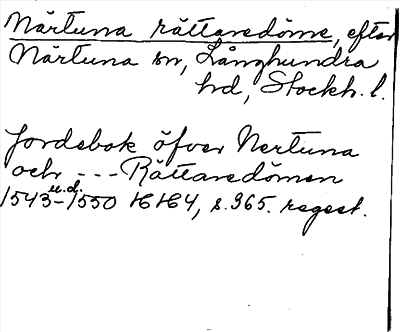 Närtuna rättaredöme, efter
Närtuna sn, Långhundra
hd, Stockh. l.
Jordebok öfver Nertuna
och --- Rättaredömen
u.d.
1543-1550 HH4, s. 365. regest.